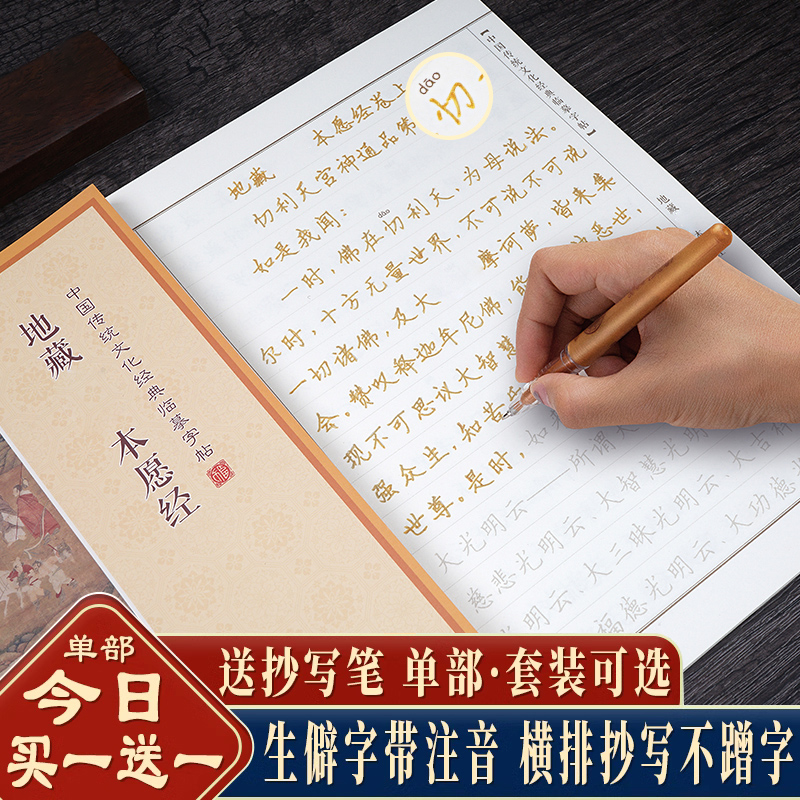 【中国传统文化经典临摹字帖】
地藏
dāo
忉
地藏 本愿经卷上
忉利天宫神通品第
如是我闻：
dāo
一时，佛在忉利天，为母说法。
尔时，十方无量世界，不可说不可说
一切诸佛，及大 摩诃萨，皆来集
会。赞叹释迦牟尼佛，能 恶世，
现不可思议大智慧
强众生，知苦
世尊。是时，如
大光明云——所谓大
慈悲光明云、大智慧光明云、大吉
光明云、大三昧光明云、大功德光
福德光明云
中国传统文化经典临摹字帖
地藏 本愿经
单部
今日
买一送一
送抄写笔 单部·套装可选
生僻字带注音 横排抄写不蹭字